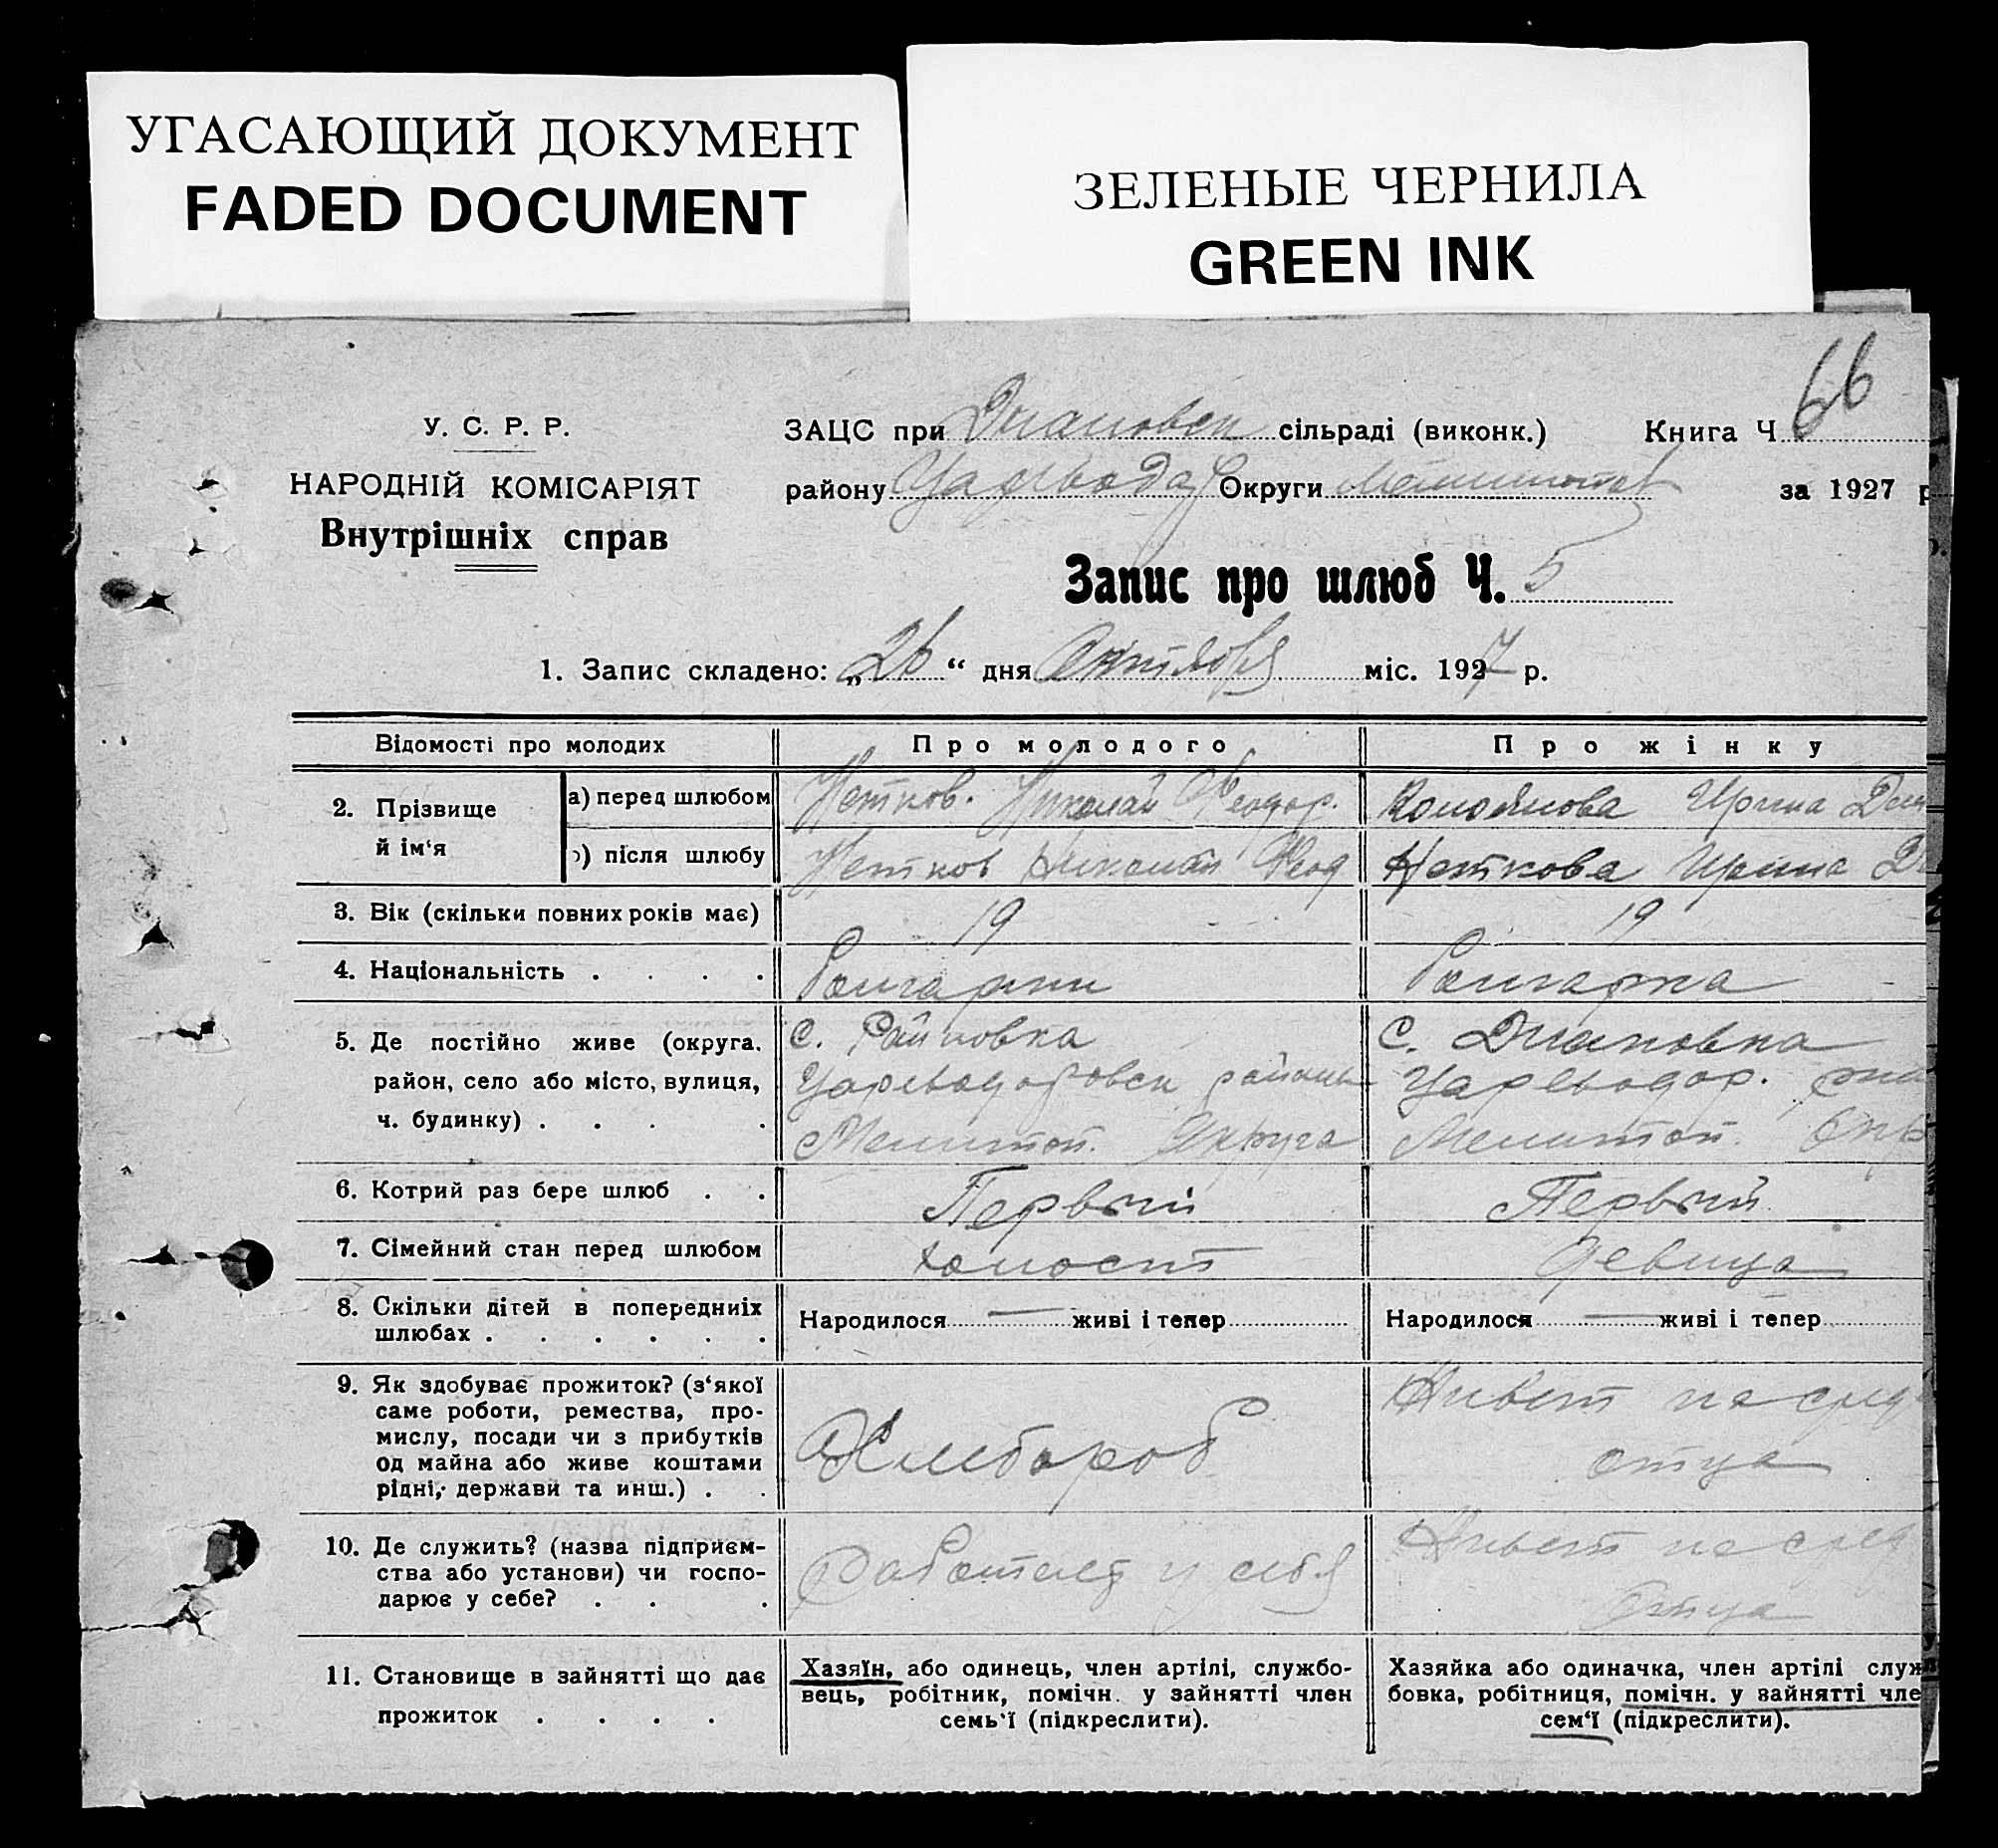 УГАСАЮЩИЙ ДОКУМЕНТ
FADED DOCUMENT
ЗЕЛЕНЫЕ ЧЕРНИЛА
GREEN INK
66
У. С. Р. Р.
НАРОДНІЙ КОМІСАРІЯТ
Внутрішніх справ
ЗАЦС при Диановск сільраді (виконк.) Книга Ч.
району Округи за 1927 р
Запис про шлюб Ч. 5
1. Запис складено: „26“ дня Октября міс. 1927 р.
Відомості про молодих
Про молодого
Про жінку
2. Прізвище й ім‘я
а) перед шлюбом
Нетков. Николай Феодор.
Ирина
) після шлюбу
Нетков Николай Феод
Неткова Ирина
3. Вік (скільки повних років має)
19
19
4. Національність . . . .
Болгарин
Болгарка
5. Де постійно живе (округа,
район, село або місто, вулиця,
ч. будинку) . . . .
с. Райновка
Цареводаровск района
Мелитоп. Округа
с. Диановка
Цареводар.
Мелитоп. Окр
6. Котрий раз бере шлюб . .
Первый
Первый
7. Сімейний стан перед шлюбом
холост
девица
8. Скільки дітей в попередніх
шлюбах . . . . . .
Народилося — живі і тепер
Народилося — живі і тепер
9. Як здобуває прожиток? (з‘якої
саме роботи, ремества, про-
мислу, посади чи з прибутків
од майна або живе коштами
рідні, держави та инш.) . .
Хлебороб
Живет на сред
отца
10. Де служить? (назва підприєм-
ства або установи) чи госпо-
дарює у себе? . . .
Работает у себя
Живет на сред
Отца
11. Становище в зайнятті що дає
прожиток . . . .
Хазяїн, або одинець, член артілі, службо-
вець, робітник, помічн. у зайнятті член
семь‘ї (підкреслити).
Хазяйка або одиначка, член артілі служ
бовка, робітниця, помічн. у зайнятті чле
сем‘ї (підкреслити).